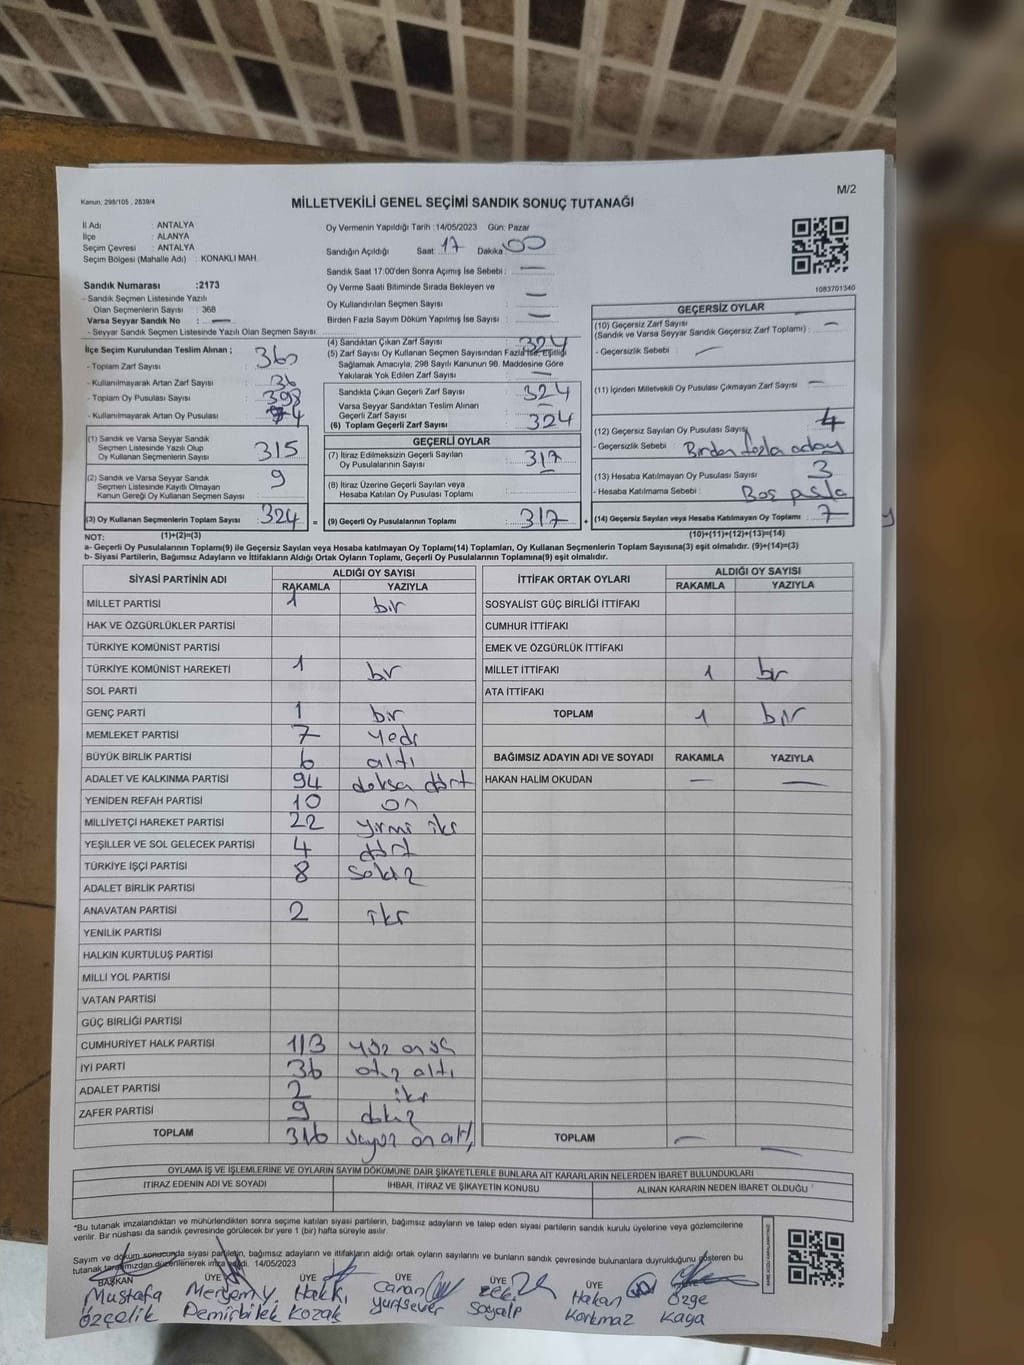 M/2
Kanun, 298/105 , 2839/4
MİLLETVEKİLİ GENEL SEÇİMİ SANDIK SONUÇ TUTANAĞI
İl Adı : ANTALYA
İlçe : ALANYA
Seçim Çevresi : ANTALYA
Seçim Bölgesi (Mahalle Adı) : KONAKLI MAH.
Oy Vermenin Yapıldığı Tarih :14/05/2023 Gün: Pazar
Sandığın Açıldığı Saat 17 Dakika 00
Sandık Saat 17:00'den Sonra Açılmış İse Sebebi : —
Oy Verme Saati Bitiminde Sırada Bekleyen ve
Oy Kullandırılan Seçmen Sayısı —
Birden Fazla Sayım Döküm Yapılmış İse Sayısı : —
1083701340
Sandık Numarası :2173
- Sandık Seçmen Listesinde Yazılı
Olan Seçmenlerin Sayısı : 368
Varsa Seyyar Sandık No : —
- Seyyar Sandık Seçmen Listesinde Yazılı Olan Seçmen Sayısı:
İlçe Seçim Kurulundan Teslim Alınan ;
- Toplam Zarf Sayısı 360
- Kullanılmayarak Artan Zarf Sayısı 36
- Toplam Oy Pusulası 398
- Kullanılmayarak Artan Oy Pusulası 74
(1) Sandık ve Varsa Seyyar Sandık
Seçmen Listesinde Yazılı Olup
Oy Kullanan Seçmenlerin Sayısı 315
(2) Sandık ve Varsa Seyyar Sandık
Seçmen Listesinde Kayıtlı Olmayan
Kanun Gereği Oy Kullanan Seçmen Sayısı : 9
(3) Oy Kullanan Seçmenlerin Toplam Sayısı 324 =
(4) Sandıktan Çıkan Zarf Sayısı 324
(5) Zarf Sayısı Oy Kullanan Seçmen Sayısından Fazla İse, Eşitliği
Sağlamak Amacıyla, 298 Sayılı Kanunun 98. Maddesine Göre
Yakılarak Yok Edilen Zarf Sayısı —
Sandıkta Çıkan Geçerli Zarf Sayısı 324
Varsa Seyyar Sandıktan Teslim Alınan
Geçerli Zarf Sayısı —
(6) Toplam Geçerli Zarf Sayısı 324
GEÇERLİ OYLAR
(7) İtiraz Edilmeksizin Geçerli Sayılan
Oy Pusulalarının Sayısı 317
(8) İtiraz Üzerine Geçerli Sayılan veya
Hesaba Katılan Oy Pusulası Toplamı —
(9) Geçerli Oy Pusulalarının Toplamı 317 +
GEÇERSİZ OYLAR
(10) Geçersiz Zarf Sayısı —
(Sandık ve Varsa Seyyar Sandık Geçersiz Zarf Toplamı) :
- Geçersizlik Sebebi : —
(11) İçinden Milletvekili Oy Pusulası Çıkmayan Zarf Sayısı —
(12) Geçersiz Sayılan Oy Pusulası Sayısı 4
- Geçersizlik Sebebi : Birden fazla aday
(13) Hesaba Katılmayan Oy Pusulası Sayısı 3
- Hesaba Katılmama Sebebi : Boş pusla
(14) Geçersiz Sayılan veya Hesaba Katılmayan Oy Toplamı : 7
NOT: (1)+(2)=(3) (10)+(11)+(12)+(13)=(14)
a- Geçerli Oy Pusulalarının Toplamı(9) ile Geçersiz Sayılan veya Hesaba katılmayan Oy Toplamı(14) Toplamları, Oy Kullanan Seçmenlerin Toplam Sayısına(3) eşit olmalıdır. (9)+(14)=(3)
b- Siyasi Partilerin, Bağımsız Adayların ve İttifakların Aldığı Ortak Oyların Toplamı, Geçerli Oy Pusulalarının Toplamına(9) eşit olmalıdır.
SİYASİ PARTİNİN ADI ALDIĞI OY SAYISI
RAKAMLA YAZIYLA
MİLLET PARTİSİ 1 bir
HAK VE ÖZGÜRLÜKLER PARTİSİ
TÜRKİYE KOMÜNİST PARTİSİ
TÜRKİYE KOMÜNİST HAREKETİ 1 bir
SOL PARTİ
GENÇ PARTİ 1 bir
MEMLEKET PARTİSİ 7 yedi
BÜYÜK BİRLİK PARTİSİ 6 altı
ADALET VE KALKINMA PARTİSİ 94 doksa dört
YENİDEN REFAH PARTİSİ 10 on
MİLLİYETÇİ HAREKET PARTİSİ 22 yirmi iki
YEŞİLLER VE SOL GELECEK PARTİSİ 4 dört
TÜRKİYE İŞÇİ PARTİSİ 8 sekiz
ADALET BİRLİK PARTİSİ
ANAVATAN PARTİSİ 2 iki
YENİLİK PARTİSİ
HALKIN KURTULUŞ PARTİSİ
MİLLİ YOL PARTİSİ
VATAN PARTİSİ
GÜÇ BİRLİĞİ PARTİSİ
CUMHURİYET HALK PARTİSİ 113 yüz onüç
İYİ PARTİ 36 otuz altı
ADALET PARTİSİ 2 iki
ZAFER PARTİSİ 9 dokuz
TOPLAM 316 üçyüz on altı
İTTİFAK ORTAK OYLARI ALDIĞI OY SAYISI
RAKAMLA YAZIYLA
SOSYALİST GÜÇ BİRLİĞİ İTTİFAKI
CUMHUR İTTİFAKI
EMEK VE ÖZGÜRLÜK İTTİFAKI
MİLLET İTTİFAKI 1 bir
ATA İTTİFAKI
TOPLAM 1 bir
BAĞIMSIZ ADAYIN ADI VE SOYADI RAKAMLA YAZIYLA
HAKAN HALİM OKUDAN — —
TOPLAM — —
OYLAMA İŞ VE İŞLEMLERİNE VE OYLARIN SAYIM DÖKÜMÜNE DAİR ŞİKAYETLERLE BUNLARA AİT KARARLARIN NELERDEN İBARET BULUNDUKLARI
İTİRAZ EDENİN ADI VE SOYADI İHBAR, İTİRAZ VE ŞİKAYETİN KONUSU ALINAN KARARIN NEDEN İBARET OLDUĞU
*Bu tutanak imzalandıktan ve mühürlendikten sonra seçime katılan siyasi partilerin, bağımsız adayların ve talep eden siyasi partilerin sandık kurulu üyelerine veya gözlemcilerine
verilir. Bir nüshası da sandık çevresinde görülecek bir yere 1 (bir) hafta süreyle asılır.
Sayım ve döküm sonucunda siyasi partilerin, bağımsız adayların ve ittifakların aldığı ortak oyların sayılarını ve bunların sandık çevresinde bulunanlara duyrulduğunu gösteren bu
tutanak tarafımızdan düzenlenerek imza edildi. 14/05/2023
BAŞKAN ÜYE ÜYE ÜYE ÜYE ÜYE
Mustafa Özçelik
Meryem Y. Demirbilek
Hakkı Kozak
Canan Yurtsever
Zeki Soyalp
Hakan Korkmaz
Özge Kaya